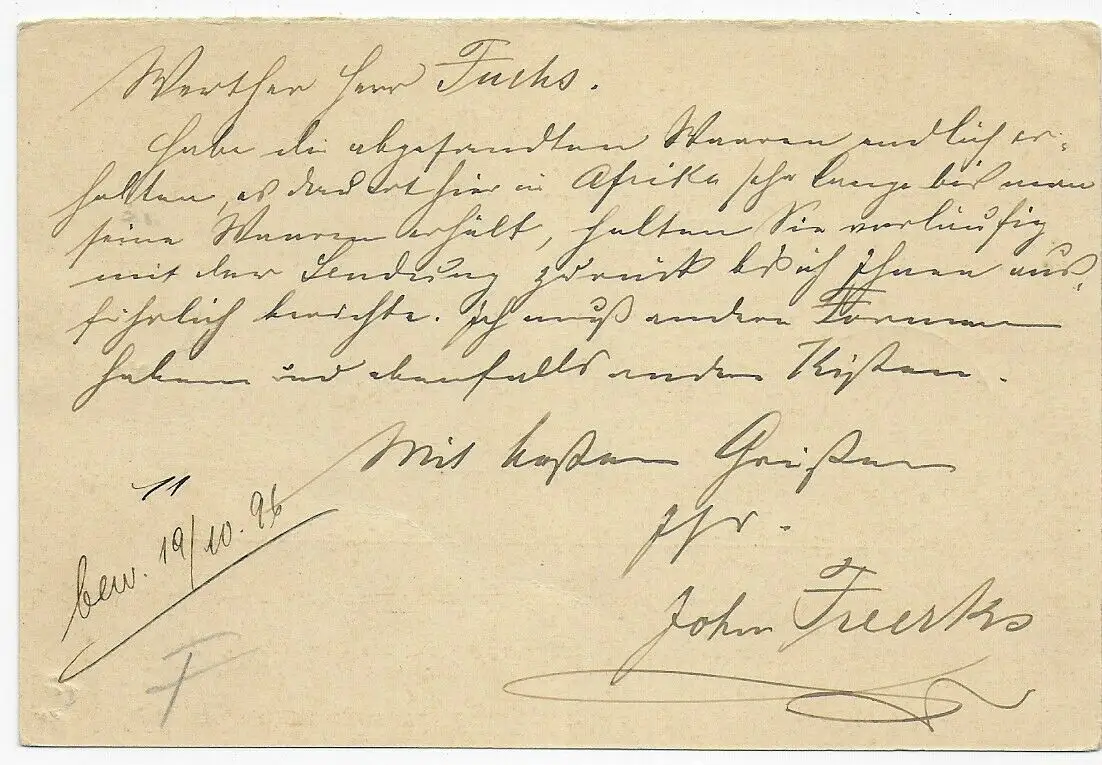 Werther Herr Fuchs.
Habe die abgesandten Waaren endlich er-
halten, es dauert hier in Afrika sehr lange bis man
seine Waaren erhält, halten Sie vorläufig
mit der Sendung zurück bis ich Ihnen aus-
führlich berichte. Ich muß andere Formen
haben und ebenfalls andere Kisten.
Mit besten Grüßen
Ihr.
John Freerks
11
bew. 19/10.96
F